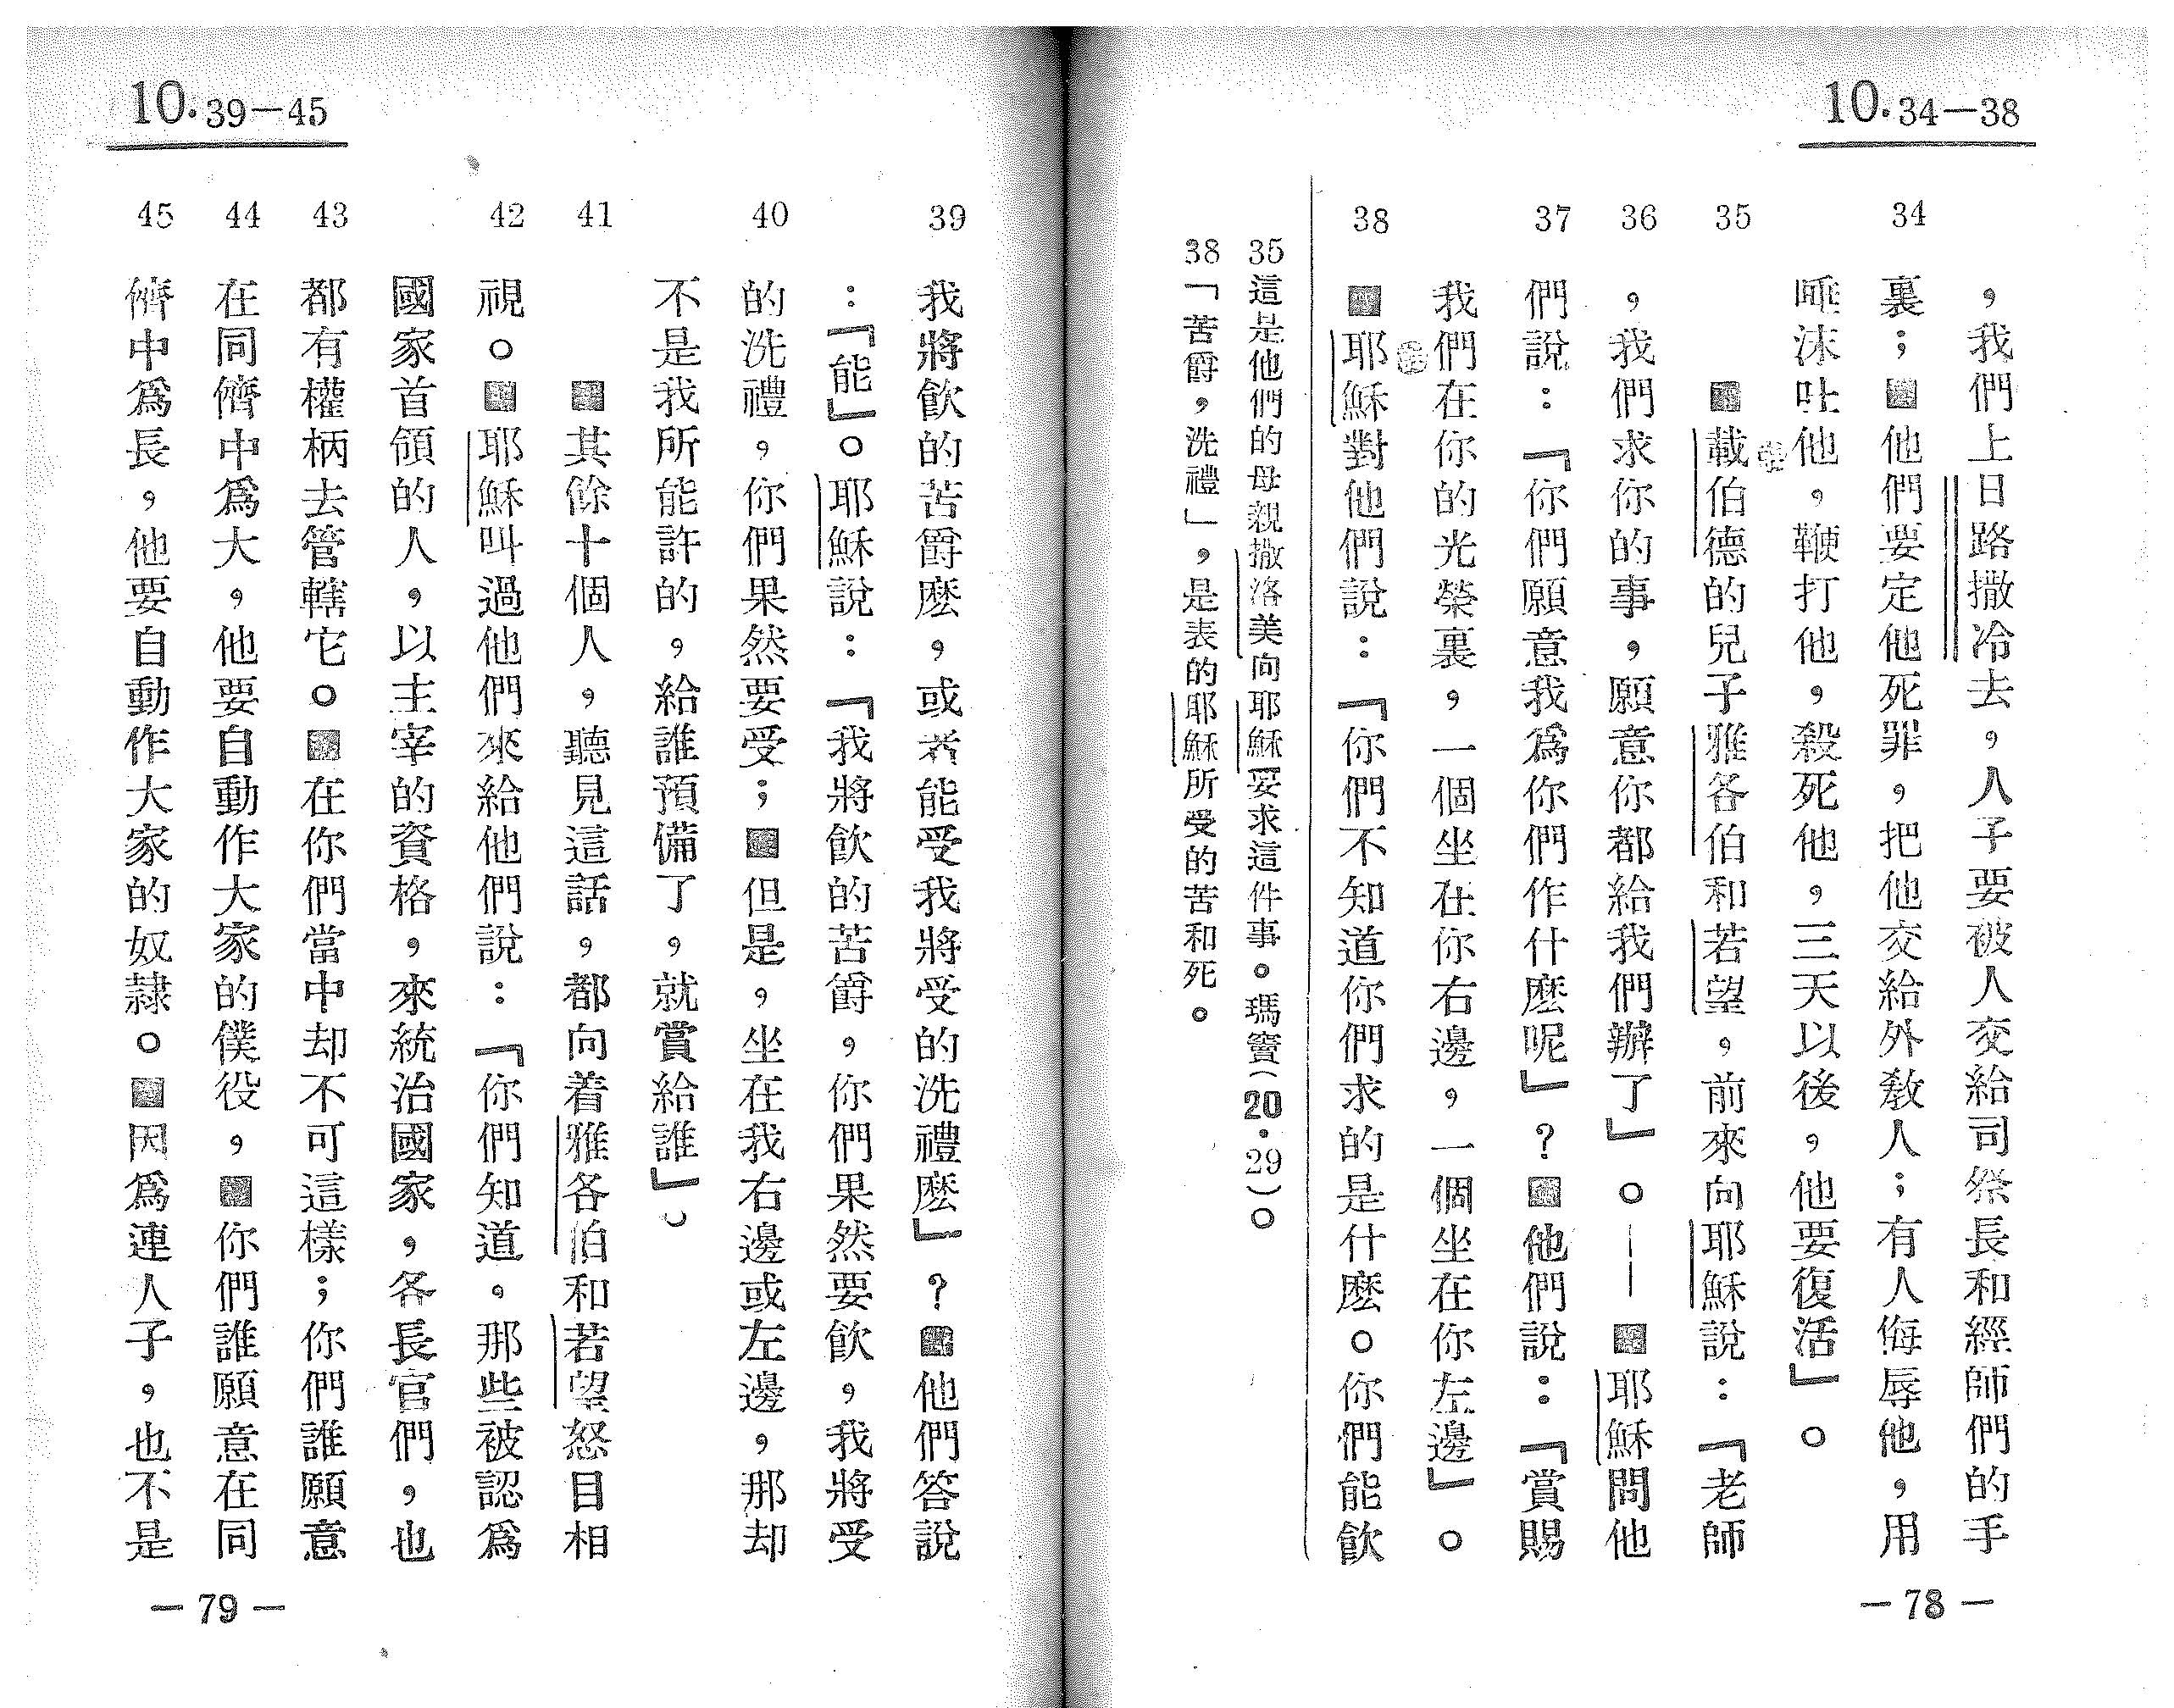 10.34—38
，我們上日路撒冷去，人子要被人交給司祭長和經師們的手
34
裏；他們要定他死罪，把他交給外教人；有人侮辱他，用
唾沫吐他，鞭打他，殺死他，三天以後，他要復活」。
35
載伯德的兒子雅各伯和若望，前來向耶穌說：「老師
36
，我們求你的事，願意你都給我們辦了」。——耶穌問他
37
們說：「你們願意我爲你們作什麽呢」？他們說：「賞賜
我們在你的光榮裏，一個坐在你右邊，一個坐在你左邊」。
38
耶穌對他們說：「你們不知道你們求的是什麽。你們能飲
35這是他們的母親撒洛美向耶穌要求這件事。瑪竇(20.29)。
38「苦爵，洗禮」，是表的耶穌所受的苦和死。
—78—
10.39—45
39
我將飲的苦爵麽，或者能受我將受的洗禮麽」？他們答說
：「能」。耶穌說：「我將飲的苦爵，你們果然要飲，我將受
40
的洗禮，你們果然要受；但是，坐在我右邊或左邊，那却
不是我所能許的，給誰預備了，就賞給誰」。
41
其餘十個人，聽見這話，都向着雅各伯和若望怒目相
42
視。耶穌叫過他們來給他們說：「你們知道。那些被認爲
國家首領的人，以主宰的資格，來統治國家，各長官們，也
43
都有權柄去管轄它。在你們當中却不可這樣；你們誰願意
44
在同儕中爲大，他要自動作大家的僕役，你們誰願意在同
45
儕中爲長，他要自動作大家的奴隷。因爲連人子，也不是
—79—